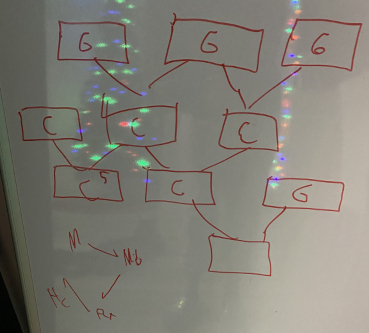 G G G
C C C
C S C G
M Mb
Hc Rr